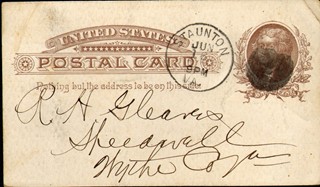 UNITED STATES
POSTAL CARD
Nothing but the address to be on this side.
STAUNTON
JUN
9PM
VA.
R. H. Gleaves
Speedwell
Wythe Co Va